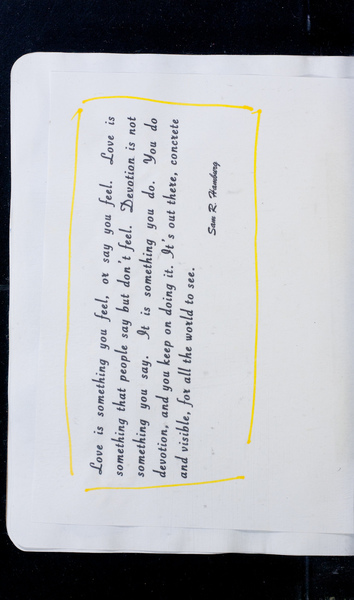 Love is something you feel, or say you feel. Love is
something that people say but don't feel. Devotion is not
something you say. It is something you do. You do
devotion, and you keep on doing it. It's out there, concrete
and visible, for all the world to see.
Sam R. Hamburg